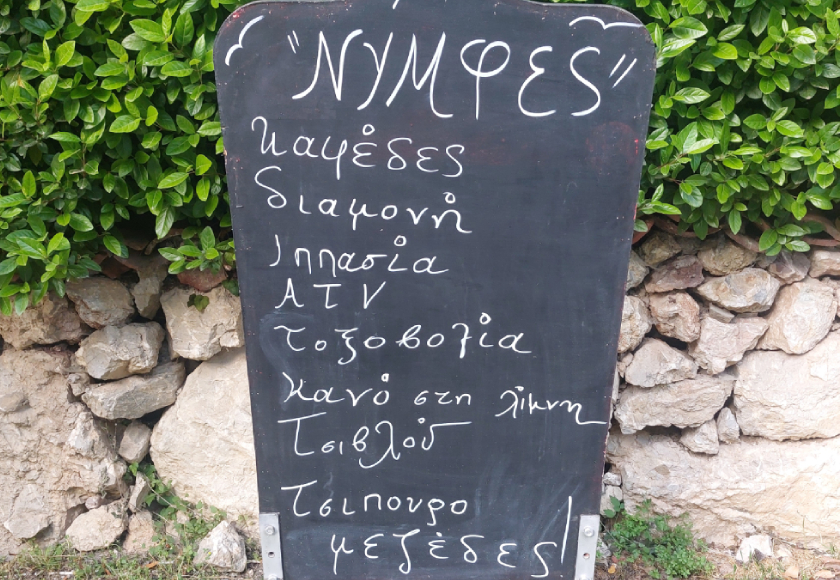 "ΝΥΜΦΕΣ"
Καφέδες
διαμονή
Ιππασία
ATV
τοξοβολία
κανό στη λίμνη
Τσιβλού
Τσίπουρο
μεζέδες!